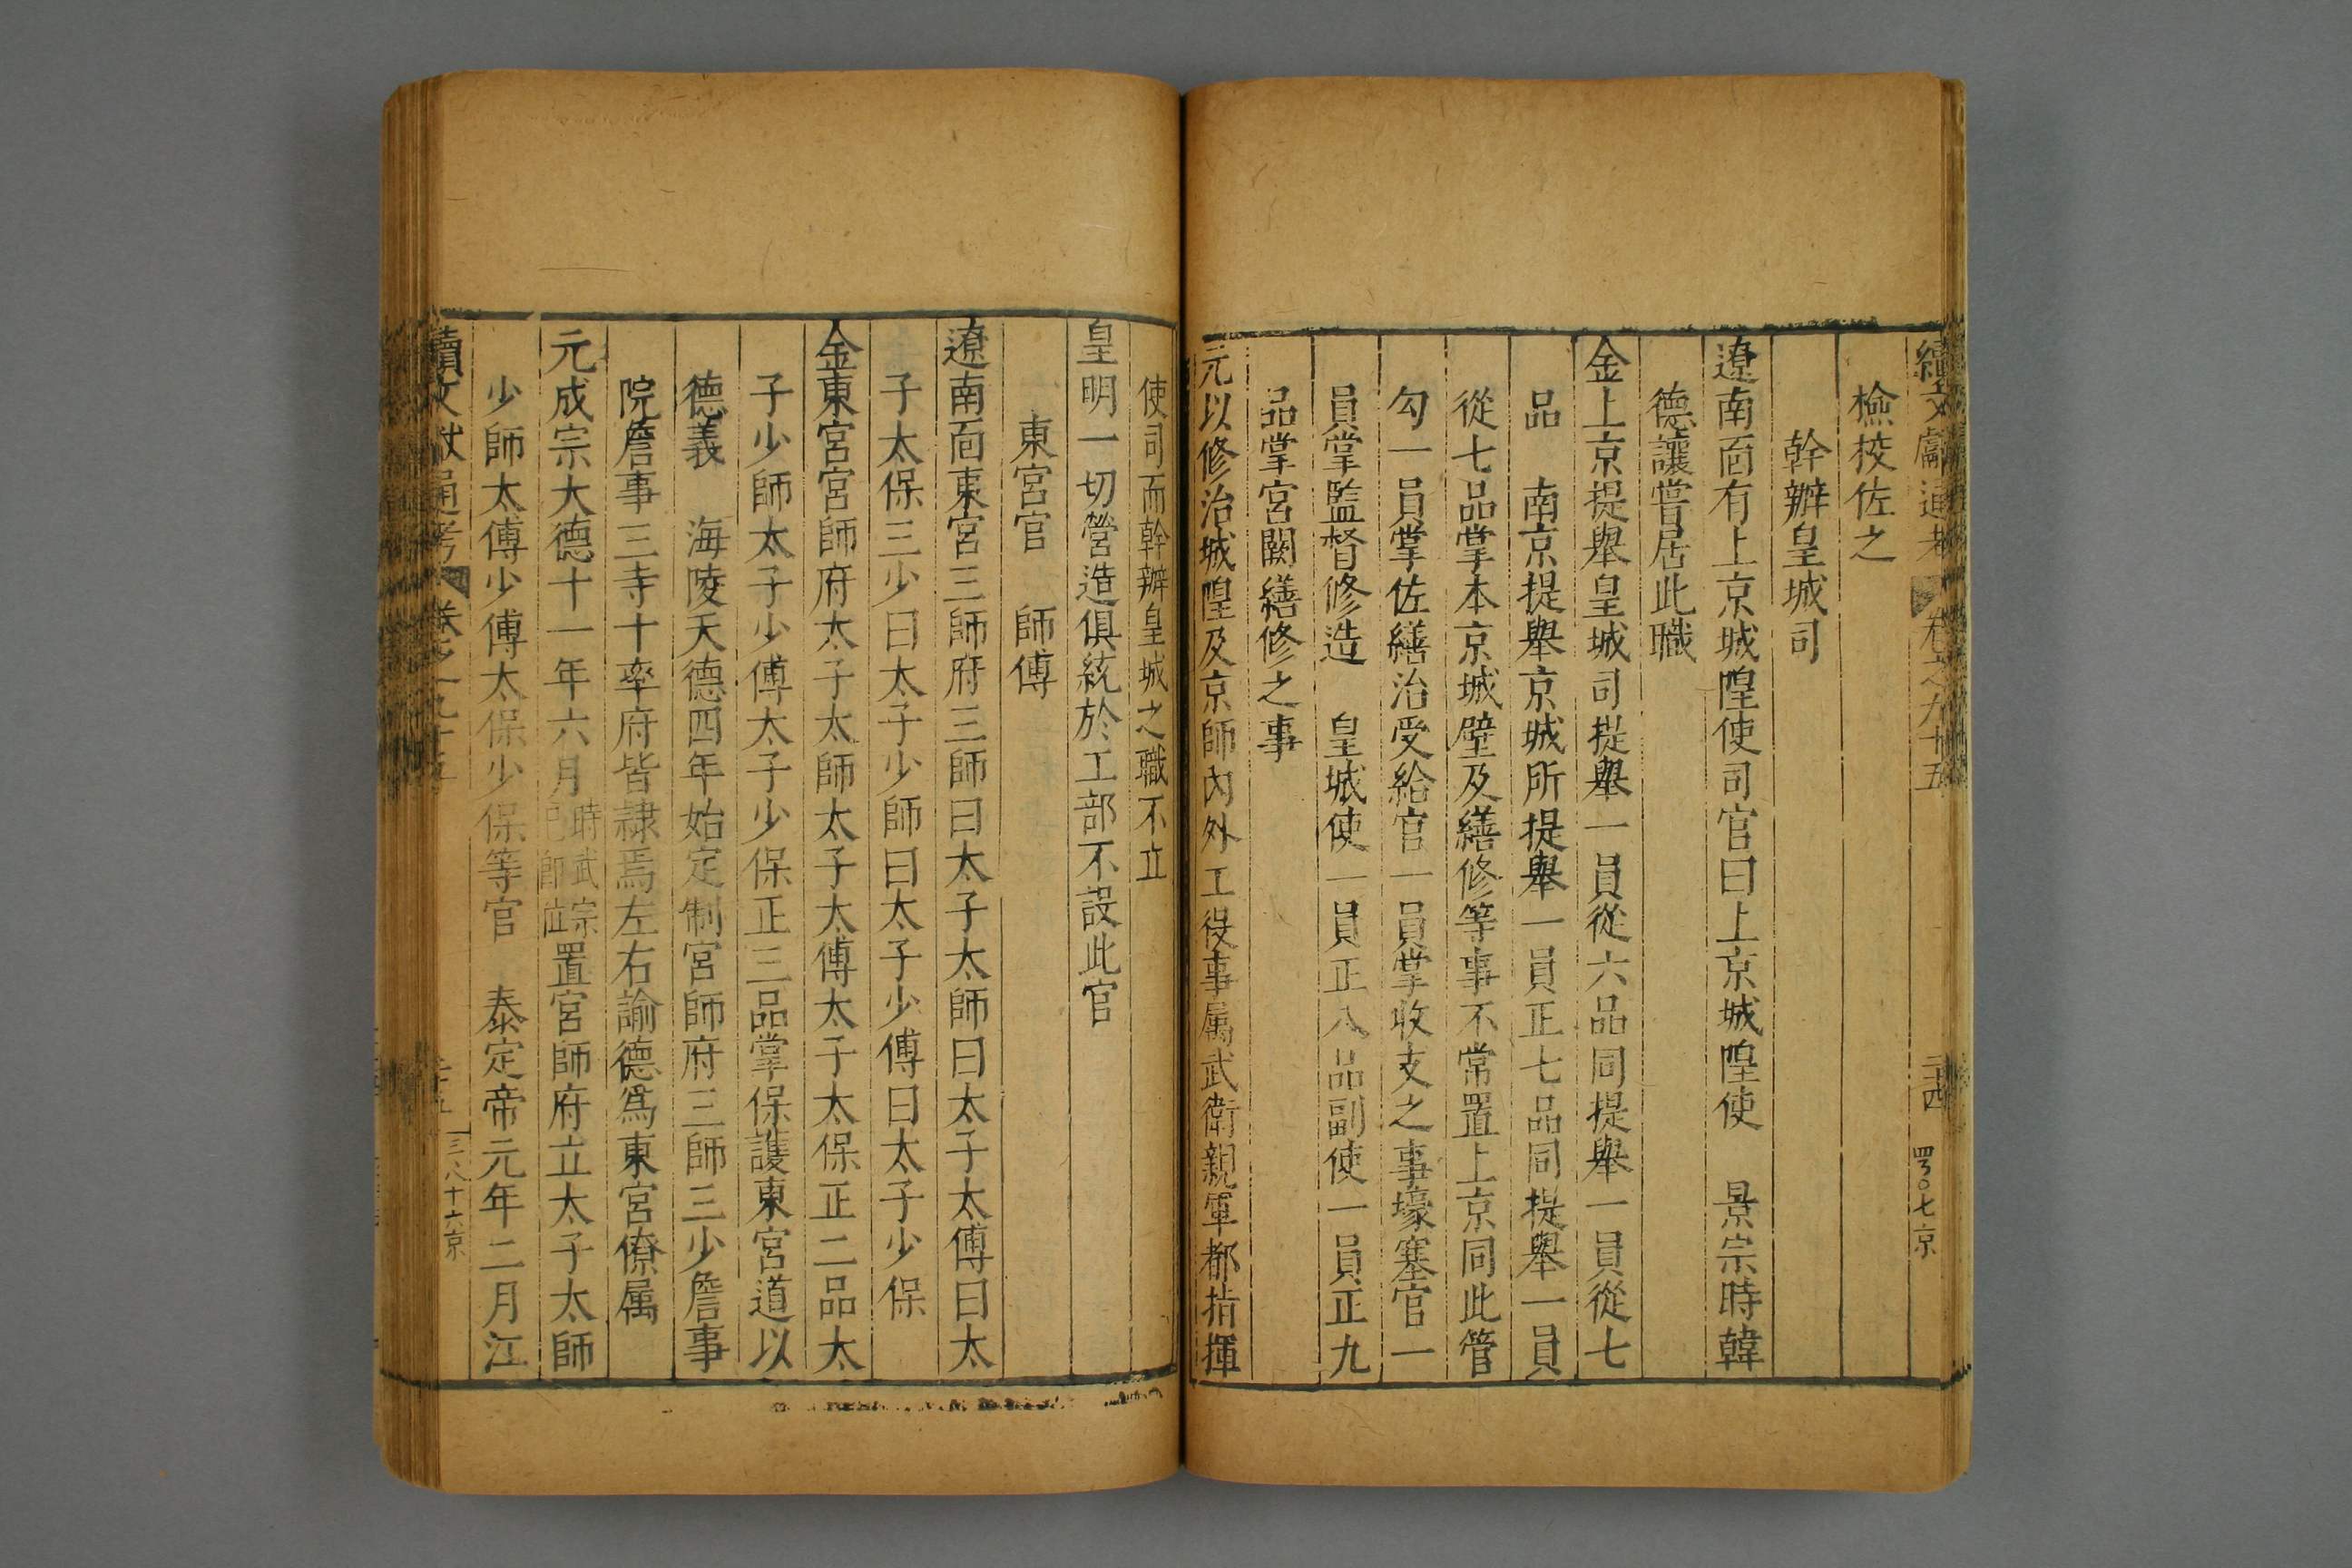 續文獻通考 卷之九十五 二十四 四百〇七 京
檢校佐之
幹辦皇城司
遼南面有上京城隍使司官曰上京城隍使 景宗時韓
德讓嘗居此職
金上京提舉皇城司提舉一員從六品同提舉一員從七
品 南京提舉京城所提舉一員正七品同提舉一員
從七品掌本京城壁及繕修等事不常置上京同此管
勾一員掌佐繕治受給官一員掌收支之事壕寨官一
員掌監督修造 皇城使一員正八品副使一員正九
品掌宮闕繕修之事
元以修治城隍及京師內外工役事属武衛親軍都指揮
使司而幹辦皇城之職不立
皇明一切營造俱統於工部不設此官
東宮官 師傅
遼南面東宮三師府三師曰太子太師曰太子太傅曰太
子太保三少曰太子少師曰太子少傅曰太子少保
金東宮宮師府太子太師太子太傅太子太保正二品太
子少師太子少傅太子少保正三品掌保護東宮道以
德義 海陵天德四年始定制宮師府三師三少詹事
院詹事三寺十率府皆隷焉左右諭德爲東宮僚属
元成宗大德十一年六月時武宗已卽位置宮師府立太子太師
少師太傅少傅太保少保等官 泰定帝元年二月江
續文獻通考 卷之九十五 二十五 三八十六 京